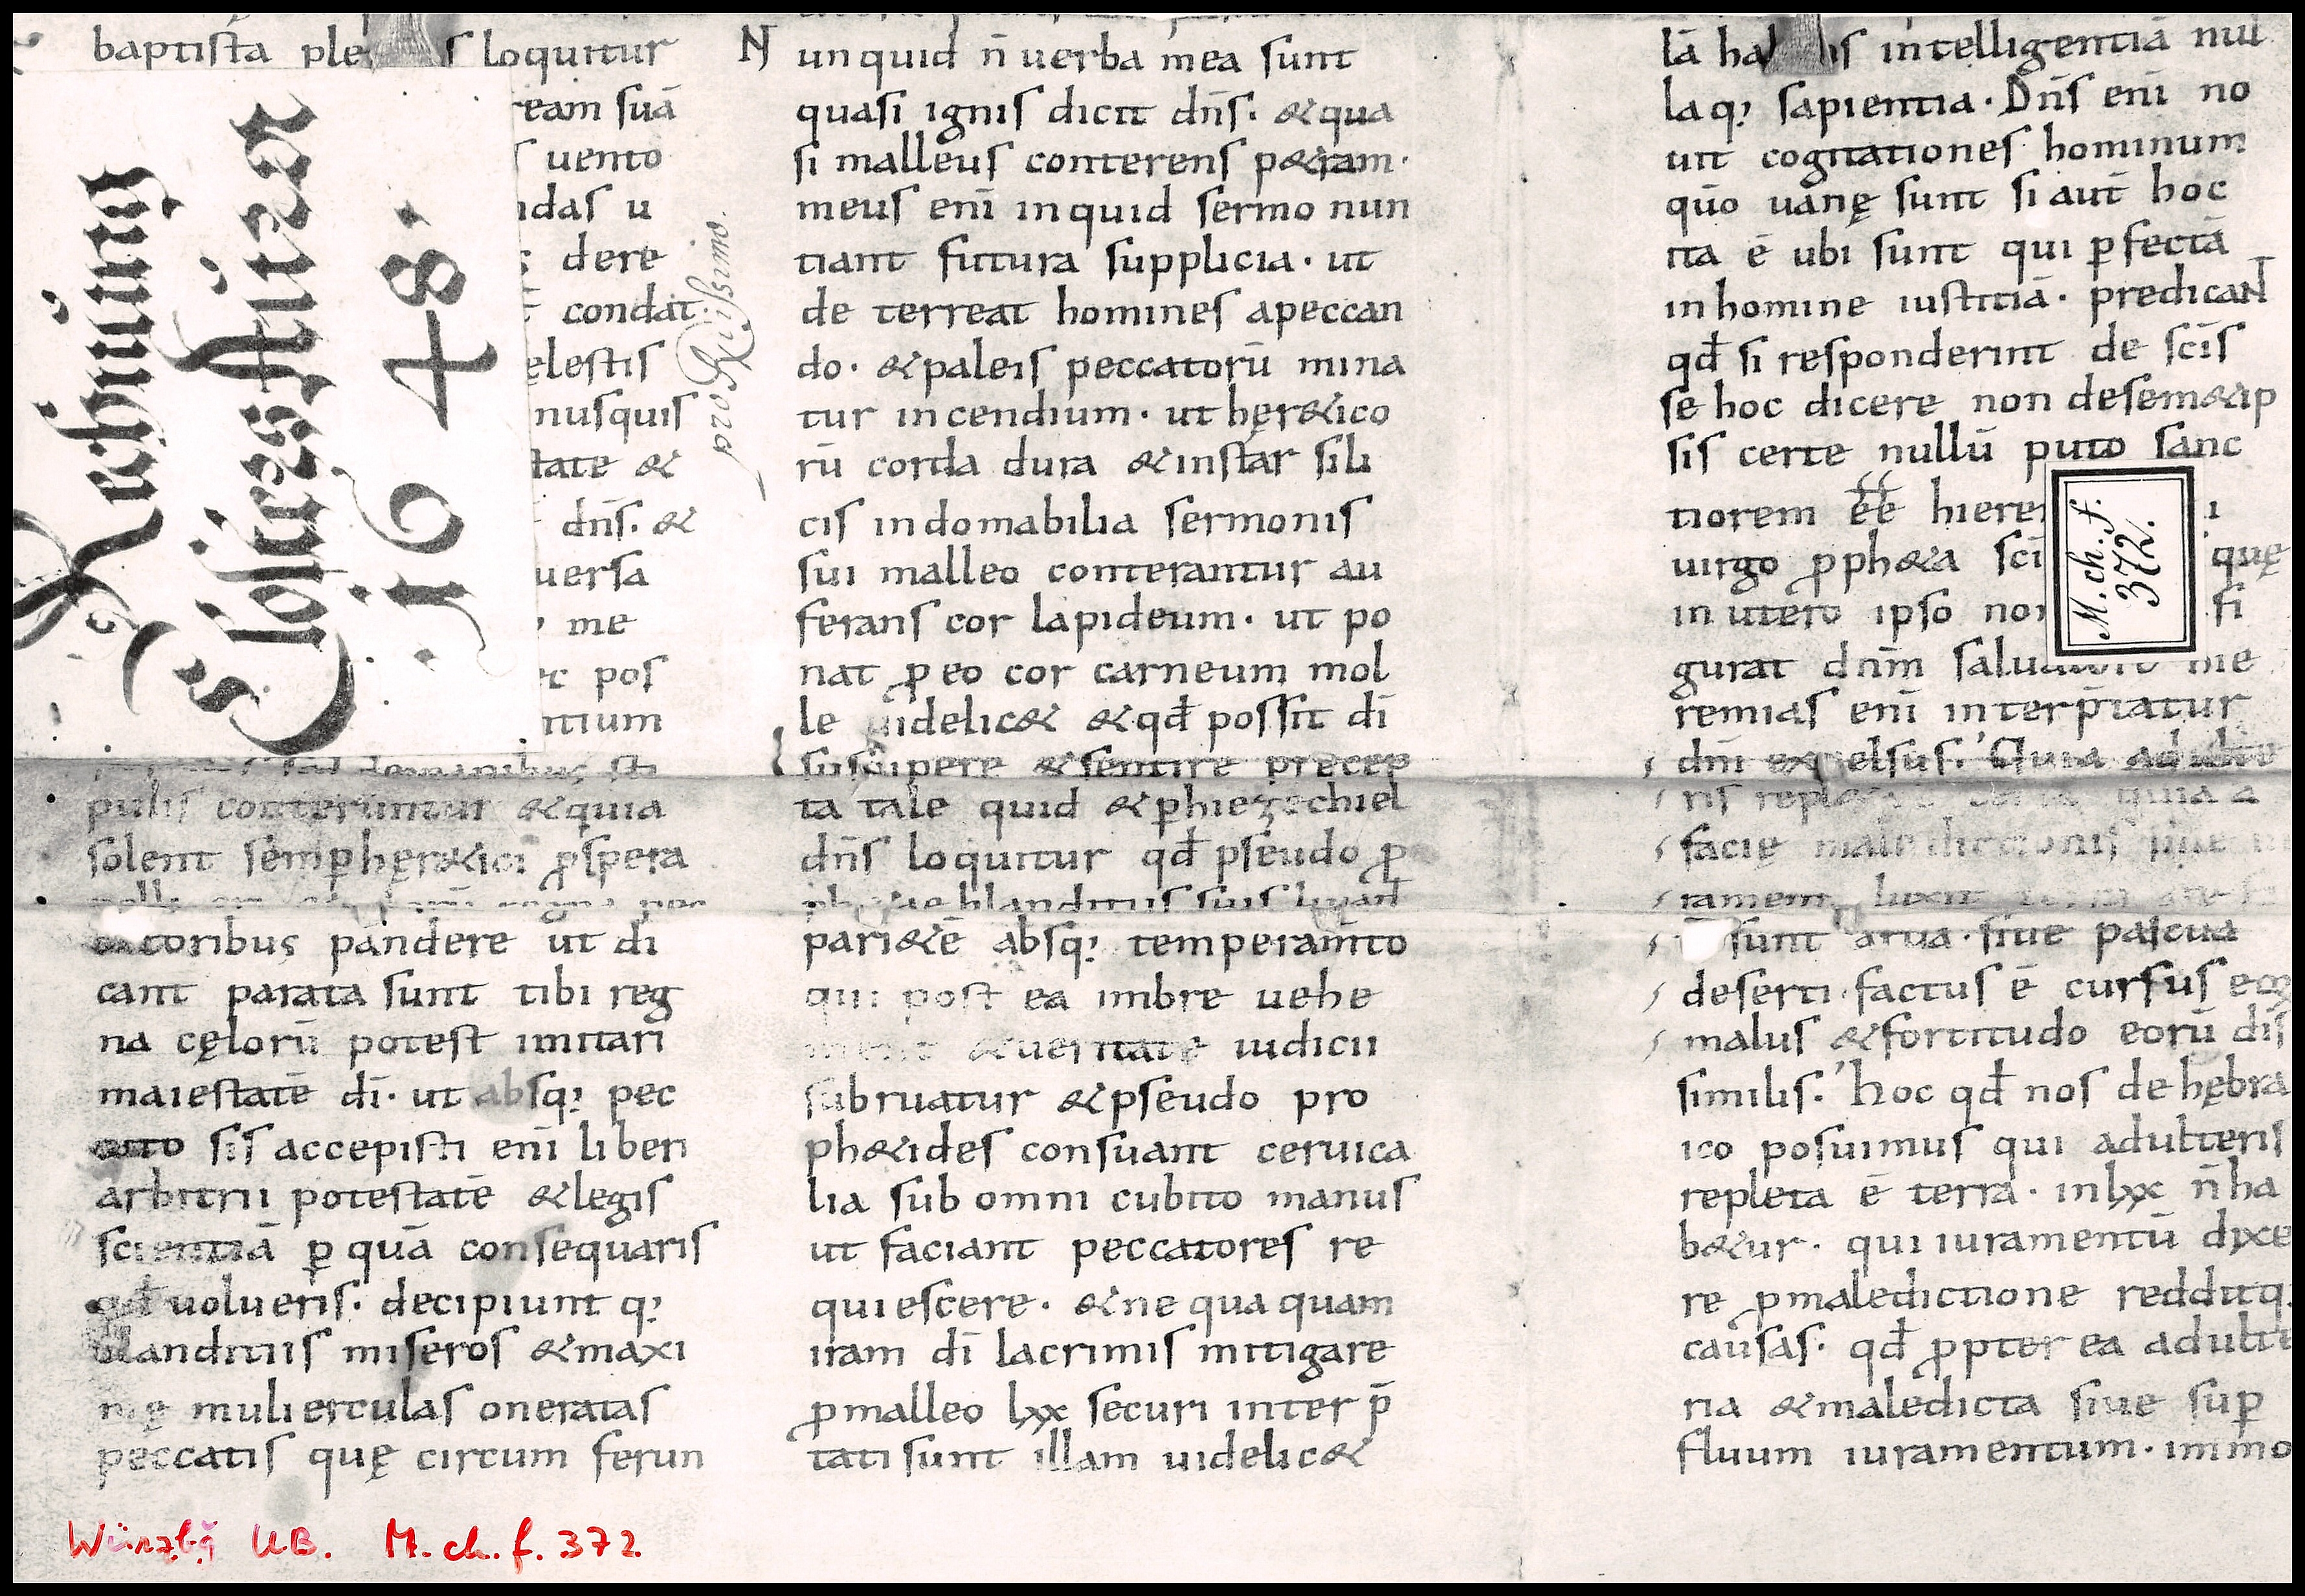 baptista ple s loquitur
ream suā
uento
ndas u
dere
condat
ęlestis
nusquis
tate &
dn̄s. &
uersa
me
ec pos
ntium
pulis conteruntur &quia
solent semp̱ hęr&ici ꝓspera
catoribus pandere ut di
cant parata sunt tibi reg
na cęlorū potest imitari
maiestatē dī· ut absq; pec
cato sis accepisti enī liberi
arbitrii potestatē &legis
scientiā ꝑ quā consequaris
qđ uolueris· decipiunt q;
blanditiis miseros &maxi
mę mulierculas oneratas
peccatis quę circum ferun
Rechnung
Closters
1648.
pro Rẽissimo.
Nunquid n̄ uerba mea sunt
quasi ignis dicit dn̄s· &qua
si malleus conterens p&ram·
meus enī inquid sermo nun
tiant futura supplicia· ut
de terreat homines apeccan
do· &paleis peccatorū mina
tur incendium· ut hęr&ico
rū corda dura &instar sili
cis indomabilia sermonis
sui malleo conterantur au
ferans cor lapideum· ut po
nat ꝓ eo cor carneum mol
le uidelic& &qđ possit dī
suscipere &sentire precep
ta tale quid &ꝑ hiezechiel
dn̄s loquitur qđ pseudo ꝓ
ph&ae blanditiis suis liniant
pari&ē absq; temperam̄to
qui post ea imbre uehe
ment &ueritate iudicii
subruatur &pseudo pro
ph&ides consuant ceruica
lia sub omni cubito manus
ut faciant peccatores re
quiescere· &ne qua quam
iram dī lacrimis mitigare
ꝓ malleo lxx securi inter p̄
tati sunt illam uidelic&
lā ha is intelligentiā nul
laq; sapientia· Dn̄s enī no
uit cogitationes hominum
quō uanę sunt si aut̄ hoc
ita ē ubi sunt qui ꝑfectā
inhomine iustitiā· predicaNT
qđ si responderint de scīs
se hoc dicere non desem&ip
sis certe nullū puto sanc
tiorem ēē hierem i
uirgo ꝓph&a sci quę
in utero ipso non fi
gurat dnm̄ saluatore hie
remias enī interp̄tatur
dnī excelsus. Quia adulte
ris replęta quia a
facię maledictionis siue iu
ramenti luxit
sunt arua· siue pascua
deserti factus ē cursus eoꝝ
malus &fortitudo eorū dis
similis. Hoc qđ nos de hębra
ico posuimus qui adulteris
repleta ē terra· inlxx n̄ ha
b&ur· qui iuramentū dixe
re ꝓ maledictione redditq;
causas· qđ ꝓpter ea adulte
ria &maledicta siue suꝑ
fluum iuramentum· immo
M. ch. f.
372.
Würzbg UB. M. ch. f. 372